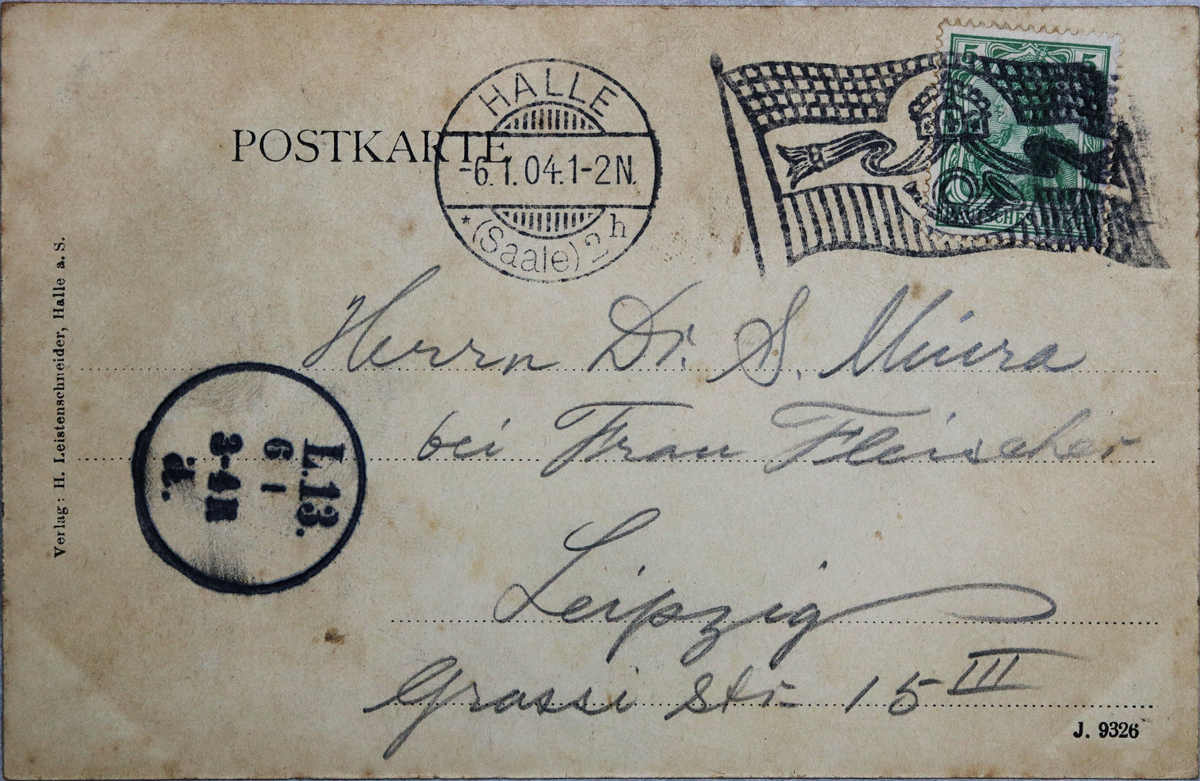 POSTKARTE
HALLE
-6.1.04.1-2N.
* (Saale) 2 h
5 5
Herrn Dr. S. Miura
bei Frau Fleischer
Leipzig
Grassi Str. 15 III
L.13.
6 1
3-4N
d.
Verlag: H. Leistenschneider, Halle a. S.
J. 9326